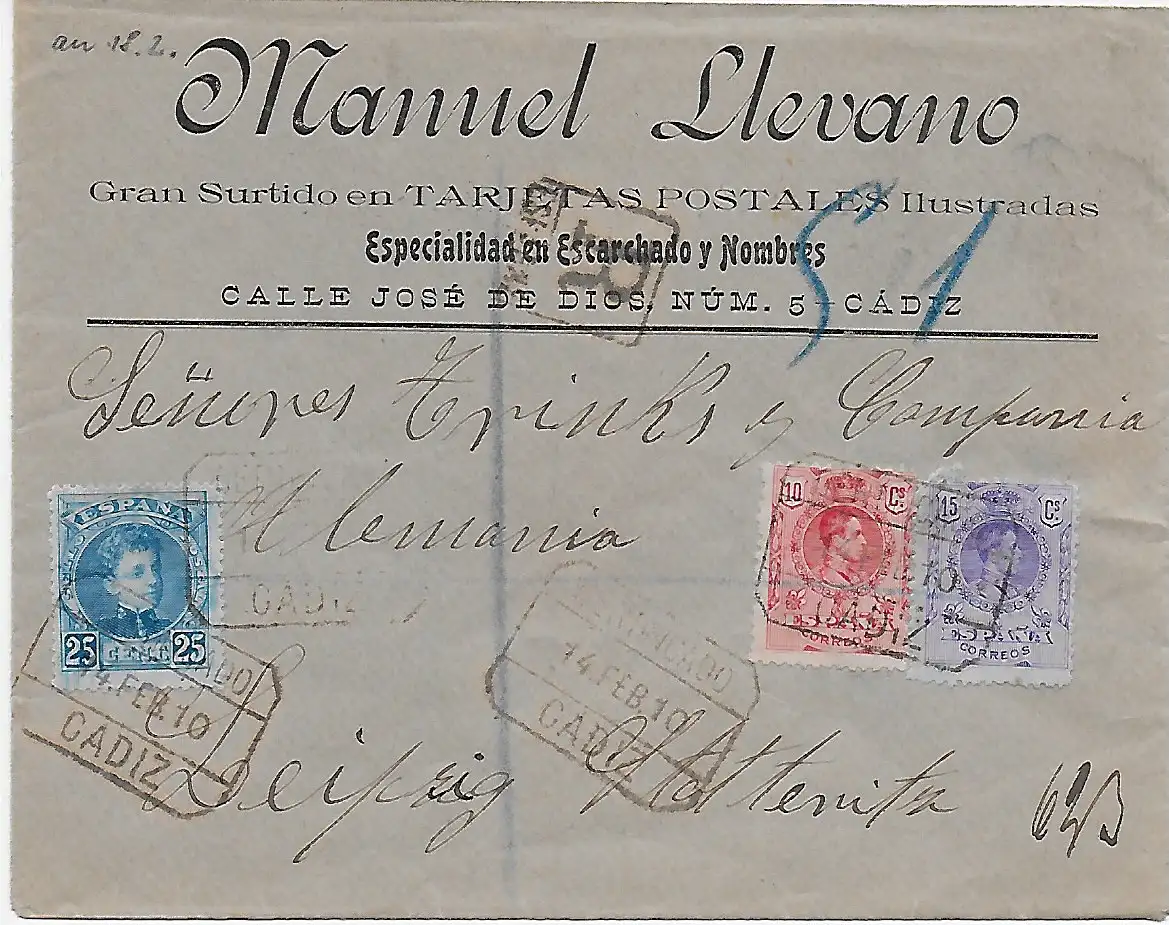 an 18.2.
Manuel Llevano
Gran Surtido en TARJETAS POSTALES Ilustradas
Especialidad en Escarchado y Nombres
CALLE JOSÉ DE DIOS, NÚM. 5 - CÁDIZ
R
51
Señores Trinks y Compania
Alemania
CADIZ
ESPAÑA
25 25
10 Cs
CORREOS
15 Cs
ESPAÑA
CORREOS
CADIZ
14.FEB.10
CADIZ
14.FEB.10
CADIZ
Leipzig